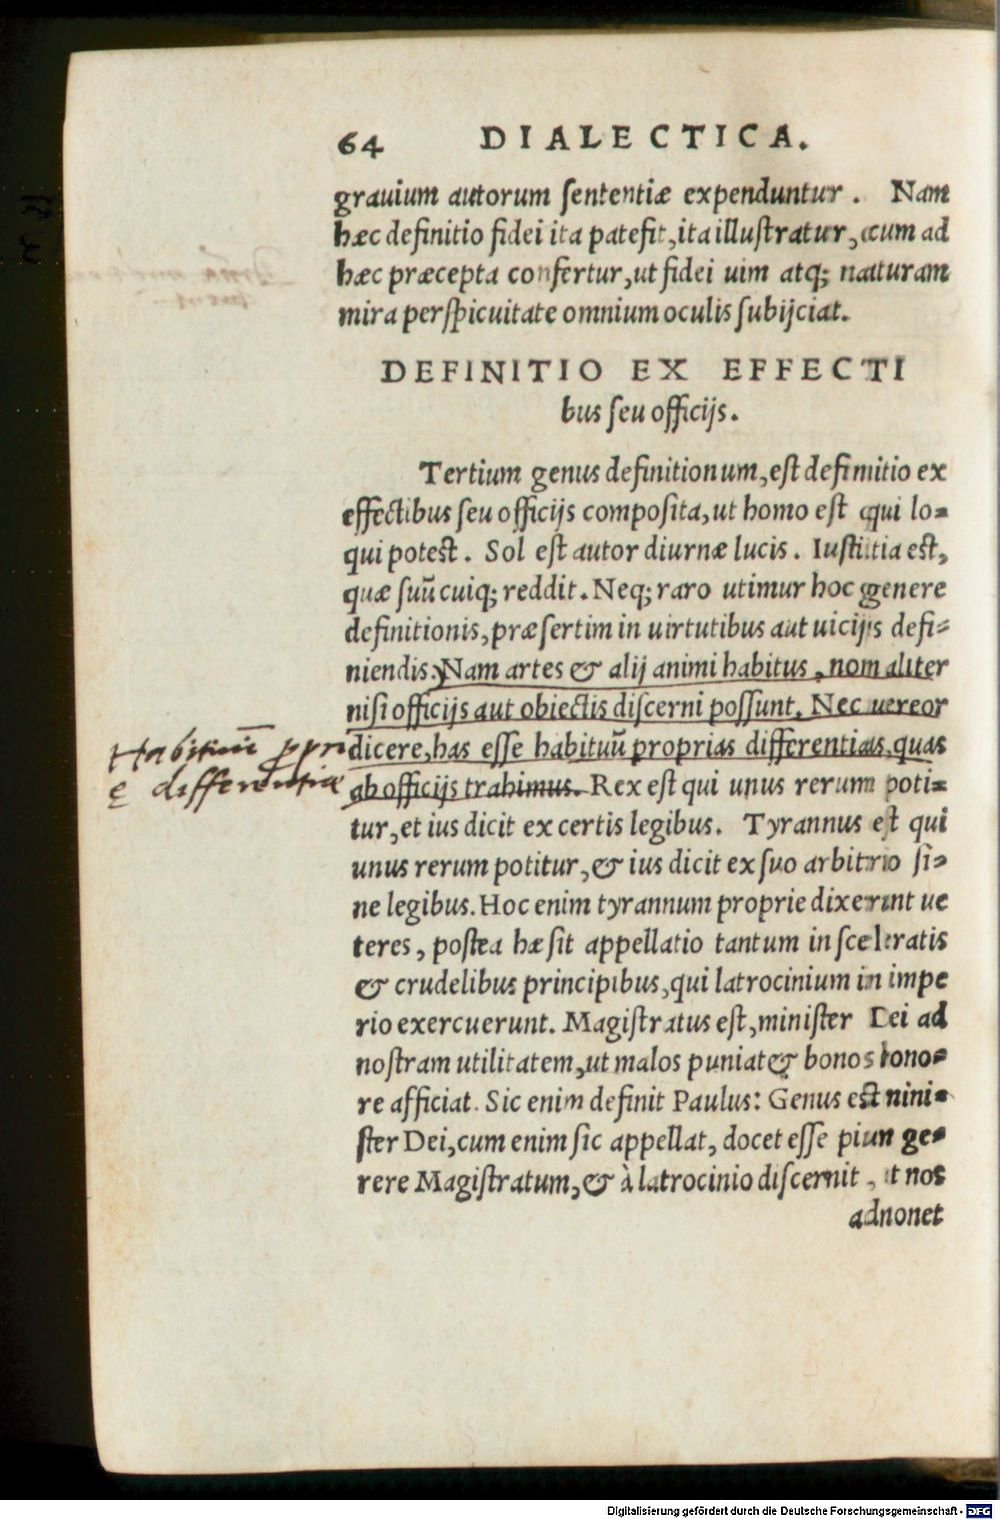 64 DIALECTICA.
grauium autorum ſententiæ expenduntur. Nam
hæc definitio fidei ita patefit, ita illuſtratur, cum ad
hæc præcepta confertur, ut fidei uim atq; naturam
mira perſpicuitate omnium oculis ſubijciat.
DEFINITIO EX EFFECTI
bus ſeu officijs.
Tertium genus definitionum, eſt definitio ex
effectibus ſeu officijs compoſita, ut homo eſt qui lo=
qui poteſt. Sol eſt autor diurnæ lucis. Iuſtitia eſt,
quæ ſuũ cuiq; reddit. Neq; raro utimur hoc genere
definitionis, præſertim in uirtutibus aut uicijs defi=
niendis. Nam artes & alij animi habitus, non aliter
niſi officijs aut obiectis diſcerni poſſunt. Nec uereor
Habituũ
dicere, has eſſe habituũ proprias differentias, quas
ę differentiæ
ab officijs trahimus. Rex eſt qui unus rerum poti=
tur, et ius dicit ex certis legibus. Tyrannus eſt qui
unus rerum potitur, & ius dicit ex ſuo arbitrio ſi=
ne legibus. Hoc enim tyrannum proprie dixerunt ue
teres, poſtea hæſit appellatio tantum in ſceleratis
& crudelibus principibus, qui latrocinium in impe
rio exercuerunt. Magiſtratus eſt, miniſter Dei ad
noſtram utilitatem, ut malos puniat & bonos hono=
re afficiat. Sic enim definit Paulus: Genus eſt mini=
ſter Dei, cum enim ſic appellat, docet eſſe pium ge=
rere Magiſtratum, & à latrocinio diſcernit, ut nos
admonet
Digitalisierung gefördert durch die Deutsche Forschungsgemeinschaft - DFG